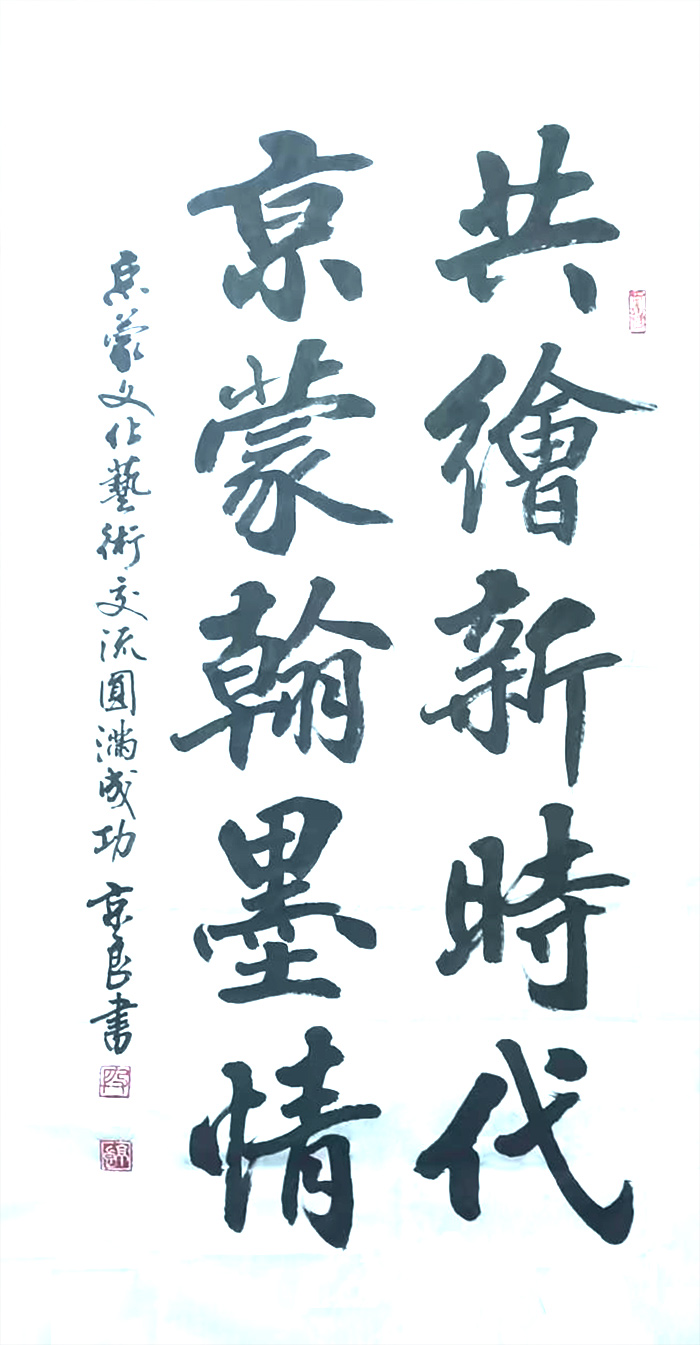 共繪新時代
京蒙翰墨情
京蒙文化藝術交流圓滿成功 京良书